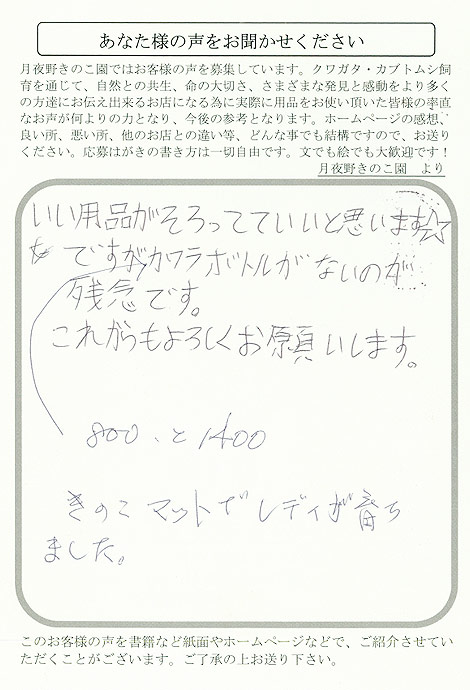 あなた様の声をお聞かせください
月夜野きのこ園ではお客様の声を募集しています。クワガタ・カブトムシ飼
育を通じて、自然との共生、命の大切さ、さまざまな発見と感動をより多く
の方達にお伝え出来るお店になる為に実際に用品をお使い頂いた皆様の率直
なお声が何よりの力となり、今後の参考となります。ホームページの感想、
良い所、悪い所、他のお店との違い等、どんな事でも結構ですので、お送り
ください。応募はがきの書き方は一切自由です。文でも絵でも大歓迎です！
月夜野きのこ園　より
いい用品がそろってていいと思います☆
ですがカワラボトルがないのが
残念です。
これからもよろしくお願いします。
800、と1400
きのこマットでレディが育ち
ました。
このお客様の声を書籍など紙面やホームページなどで、ご紹介させてい
ただくことがございます。ご了承の上お送り下さい。